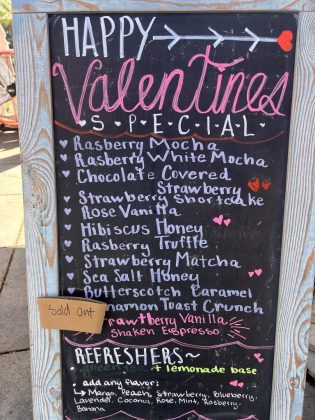 HAPPY
Valentines
SPECIAL
Rasberry Mocha
Rasberry White Mocha
Chocolate Covered
Strawberry
Strawberry Shortcake
Rose Vanilla
Hibiscus Honey
Rasberry Truffle
Strawberry Matcha
Sea Salt Honey
Butterscotch Caramel
Sold Out
nnamon Toast Crunch
rawtberry Vanilla
Shaken Espresso
REFRESHERS~
+ lemonade base
• add any flavor:
↳ Mango, Peach, Strawberry, blueberry,
Lavender, Coconut, Rose, Mint, Rasberry,
Banana